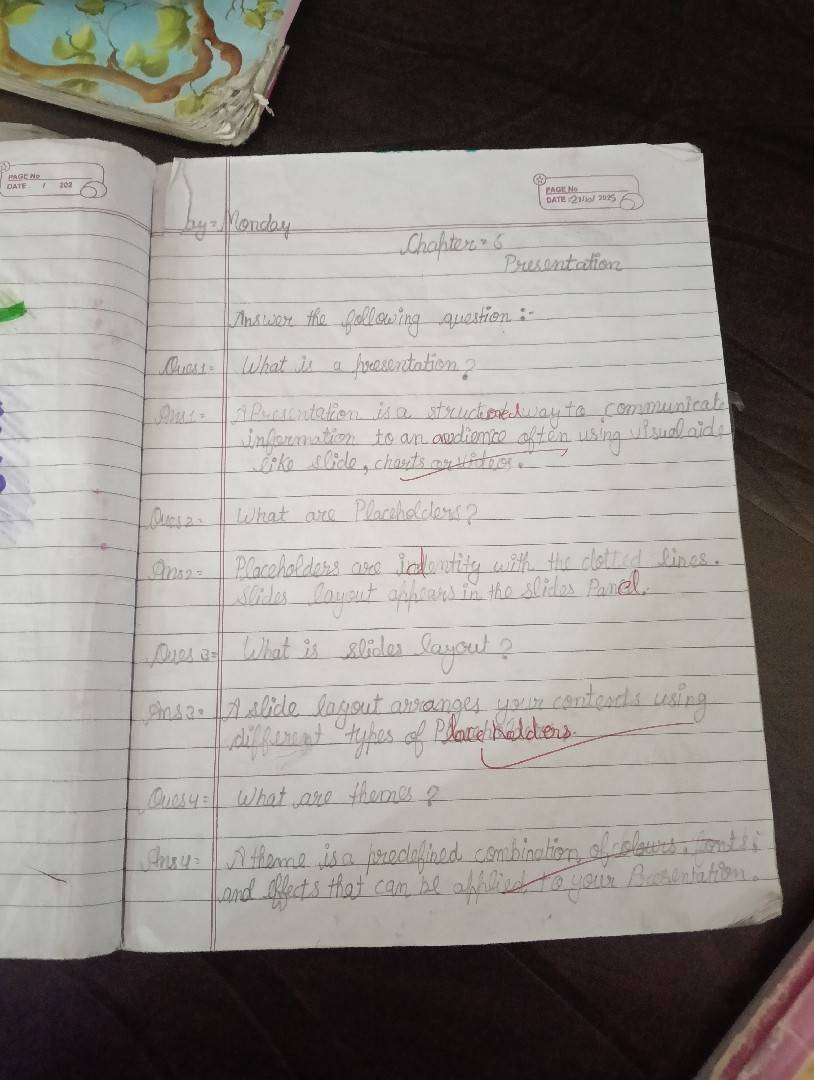 PAGE No
DATE / 202
PAGE No
DATE : 27/10/ 2025
Day = Monday
Chapter = 6
Presentation
Answer the following question :-
Ques1= What is a presentation?
Ans1= A Presentation is a structured way to communicate
information to an audience often using visual aids
like slide, charts or videos.
Ques2= What are Placeholders?
Ans2= Placeholders are indentity with the dotted lines.
slides layout appears in the slides Panel.
Ques 3= What is slides layout?
Ans3= A slide layout arranges your contents using
different types of Placeholders.
Ques4= What are themes?
Ans4= A theme is a predefined combination of colours, fonts,
and effects that can be applied to your Presentation.